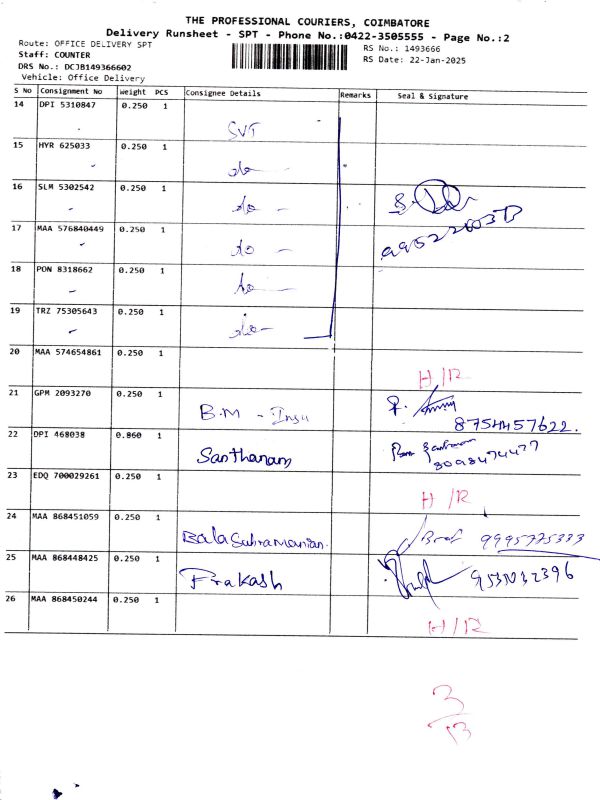 THE PROFESSIONAL COURIERS, COIMBATORE
Delivery Runsheet - SPT - Phone No.:0422-3505555 - Page No.:2
Route: OFFICE DELIVERY SPT
Staff: COUNTER
DRS No.: DCJB149366602
Vehicle: Office Delivery
RS No.: 1493666
RS Date: 22-Jan-2025
S No Consignment No Weight PCS Consignee Details Remarks Seal & Signature
14 DPI 5310847 0.250 1
SVT
15 HYR 625033 0.250 1
do
16 SLM 5302542 0.250 1
do
17 MAA 576840449 0.250 1
do
18 PON 8318662 0.250 1
do
19 TRZ 75305643 0.250 1
do
20 MAA 574654861 0.250 1
H/R
21 GPM 2093270 0.250 1
B.M - Insu
8754457622.
22 DPI 468038 0.860 1
Santhanam
23 EDQ 700029261 0.250 1
H/R
24 MAA 868451059 0.250 1
Balasubramanian. 9995775333
25 MAA 868448425 0.250 1
Prakash 9531032396
26 MAA 868450244 0.250 1
H/R
3/13